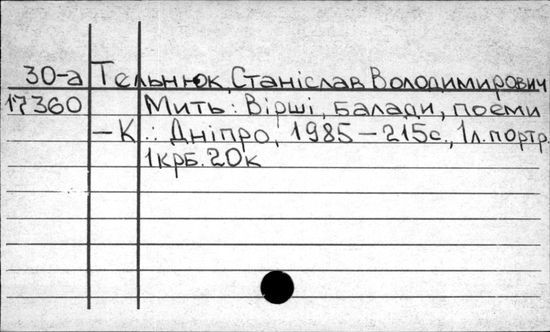 30-а Тельнюк, Станіслав Володимирович
17360 Мить: Вірші, балади, поеми
–К.: Дніпро, 1985 – 215с., 1л.портр.
1крб. 20к